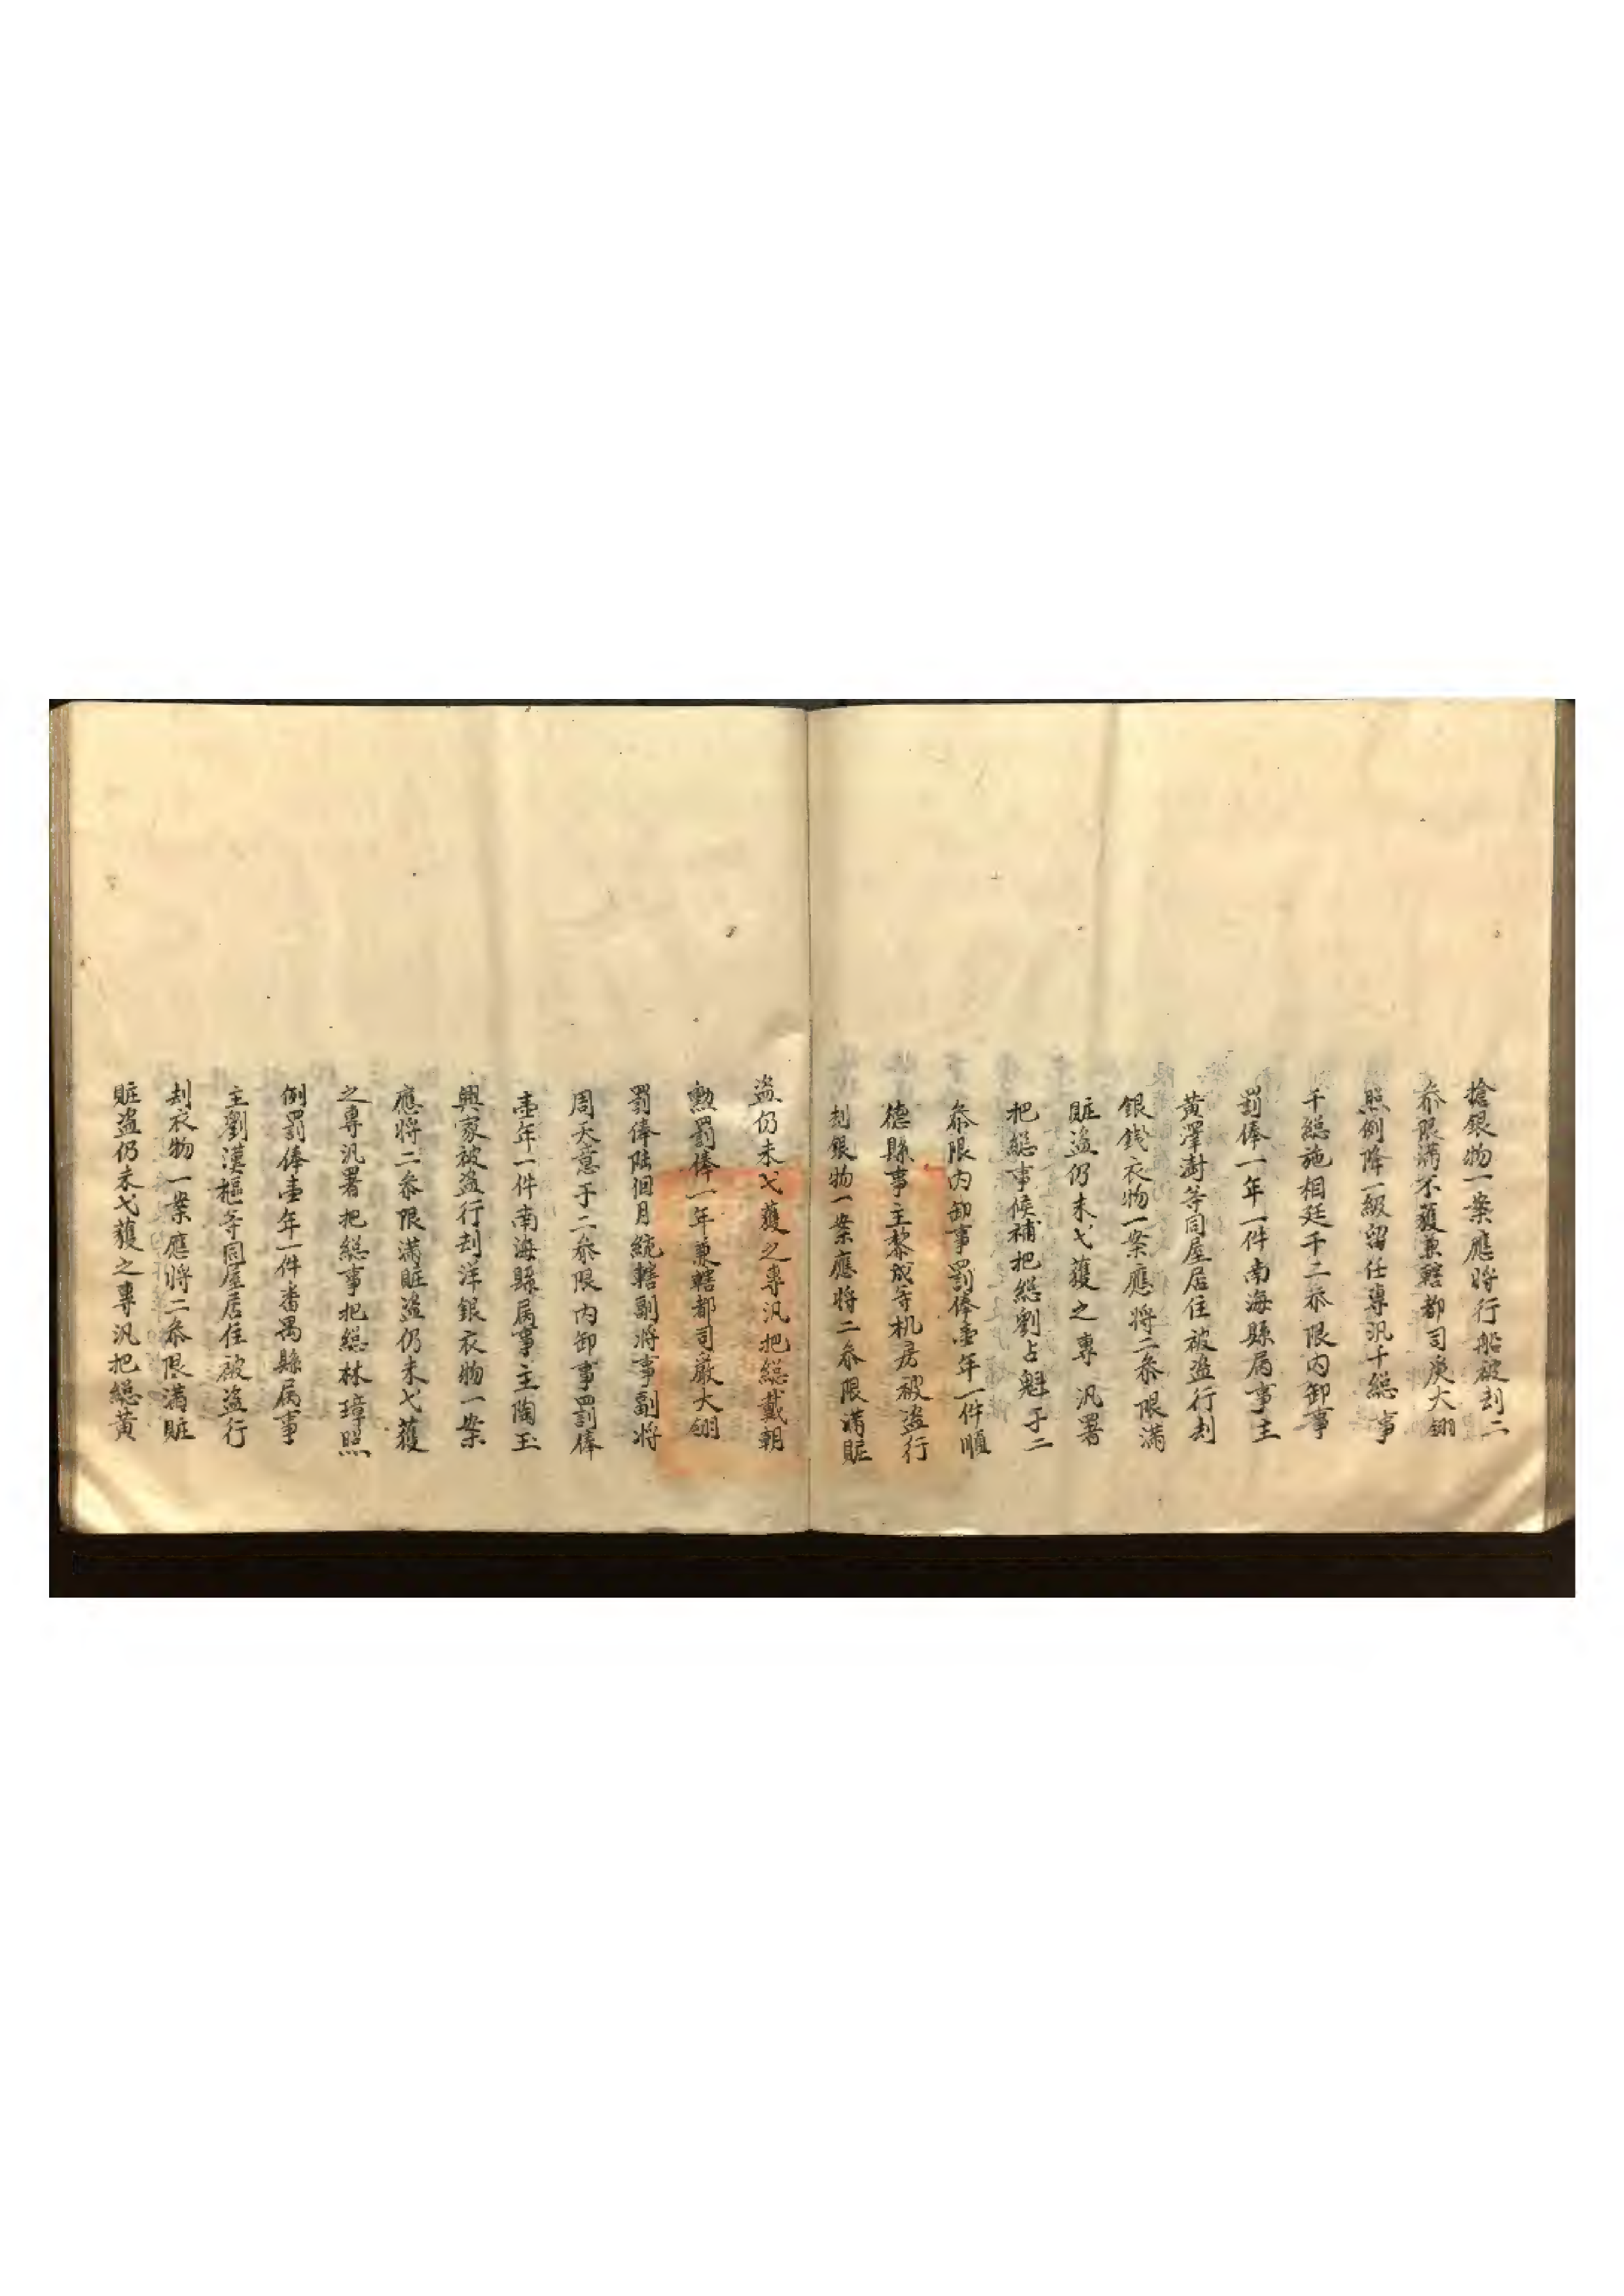 搶銀物一案應將行船被刦二
叅限滿不獲兼轄都司庾大翎
照例降一級留任專汛千緫事
千緫施相廷于二叅限內卸事
罰俸一年一件南海縣属事主
黃澤澍等同屋居住被盗行刦
銀錢衣物一案應將二叅限滿
賍盗仍未弋獲之專汛署
把緫事候補把緫劉占魁于二
叅限内卸事罰俸壹年一件順
德縣事主黎成等机房被盗行
刦銀物一案應將二叅限滿賍
盗仍未弋獲之專汛把緫戴朝
勲罰俸一年兼轄都司嚴大翎
罰俸陆個月統轄副將事副將
周天意于二叅限内卸事罰俸
壹年一件南海縣属事主陶玉
興家被盗行刦洋銀衣物一案
應將二叅限滿賍盗仍未弋獲
之專汛署把緫事把緫林璋照
例罰俸壹年一件番禺縣属事
主劉漢樞等同屋居住被盗行
刦衣物一案應將二叅限滿賍
賍盗仍未弋獲之專汛把緫黃